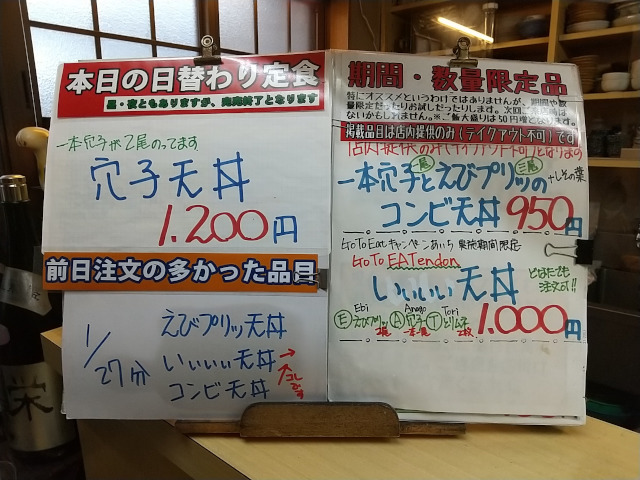 本日の日替わり定食
昼・夜ともありますが、完売終了となります
一本穴子が2尾のってます
穴子天丼
1.200円
前日注文の多かった品目
1/27分
えびプリッ天丼
いいいい天丼→
コレです
コンビ天丼
期間・数量限定品
特にオススメというわけではありませんが、期間や数
量限定だったりお試しだったりします。次回
ないかもしれません。※ご飯大盛りは50円増
掲載品目は店内提供のみ(テイクアウト不可)です
一本穴子とえびプリッの +しその葉
一尾 三尾
コンビ天丼 950円
GoToEatキャンペーンあいち 実施期間限定
GoTo EATendon
いいいい天丼 どなたでも
注文可!!
Ebi Anago Tori
Ⓔえびプリッ Ⓐ穴子 Ⓣとりムネ
2尾 一本一尾 2枚
1.000円
栄